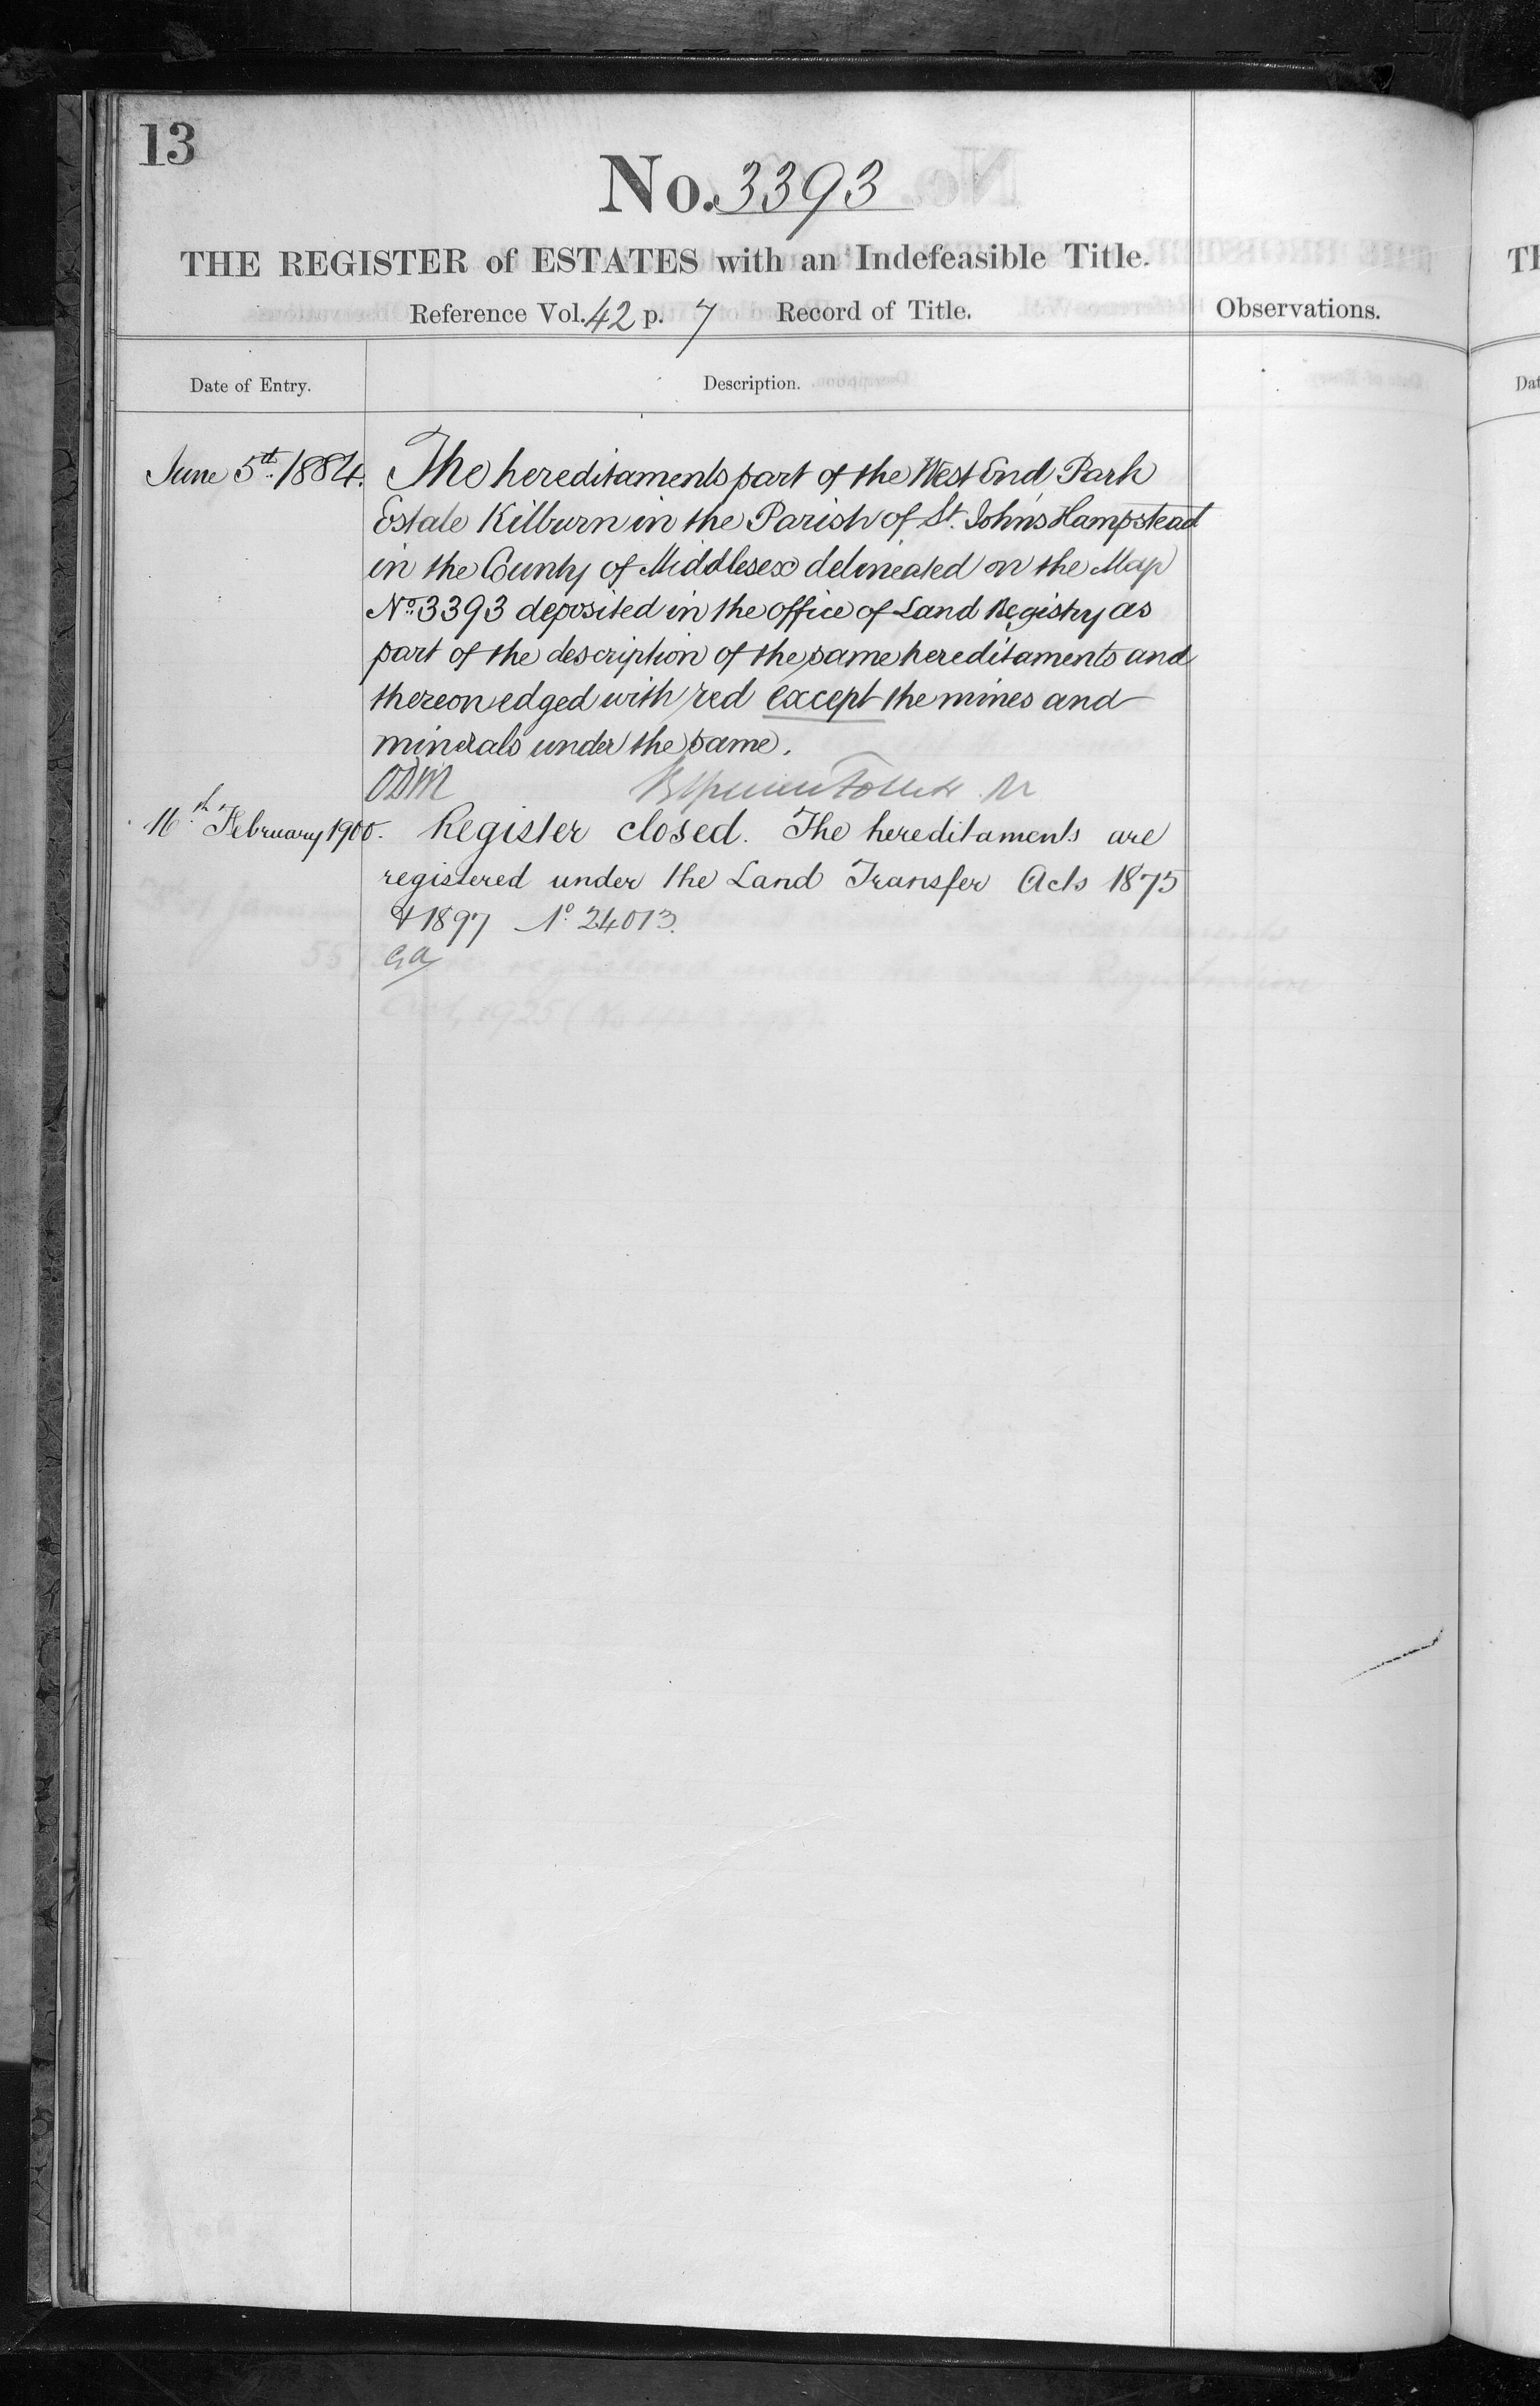 13
No. 3393
THE REGISTER of ESTATES with an Indefeasible Title.
Reference Vol. 42 p. 7 Record of Title.
Observations.
Date of Entry.
Description.
June 5th. 1884. The hereditaments part of the West End Park
Estate Kilburn in the Parish of St. John's Hampstead
in the County of Middlesex delineated on the Map
No. 3393 deposited in the office of Land Registry as
part of the description of the same hereditaments and
thereon edged with red except the mines and
minerals under the same.
ODM
16th February 1900. Register closed. The hereditaments are
registered under the Land Transfer Acts 1875
& 1897 No 24013.